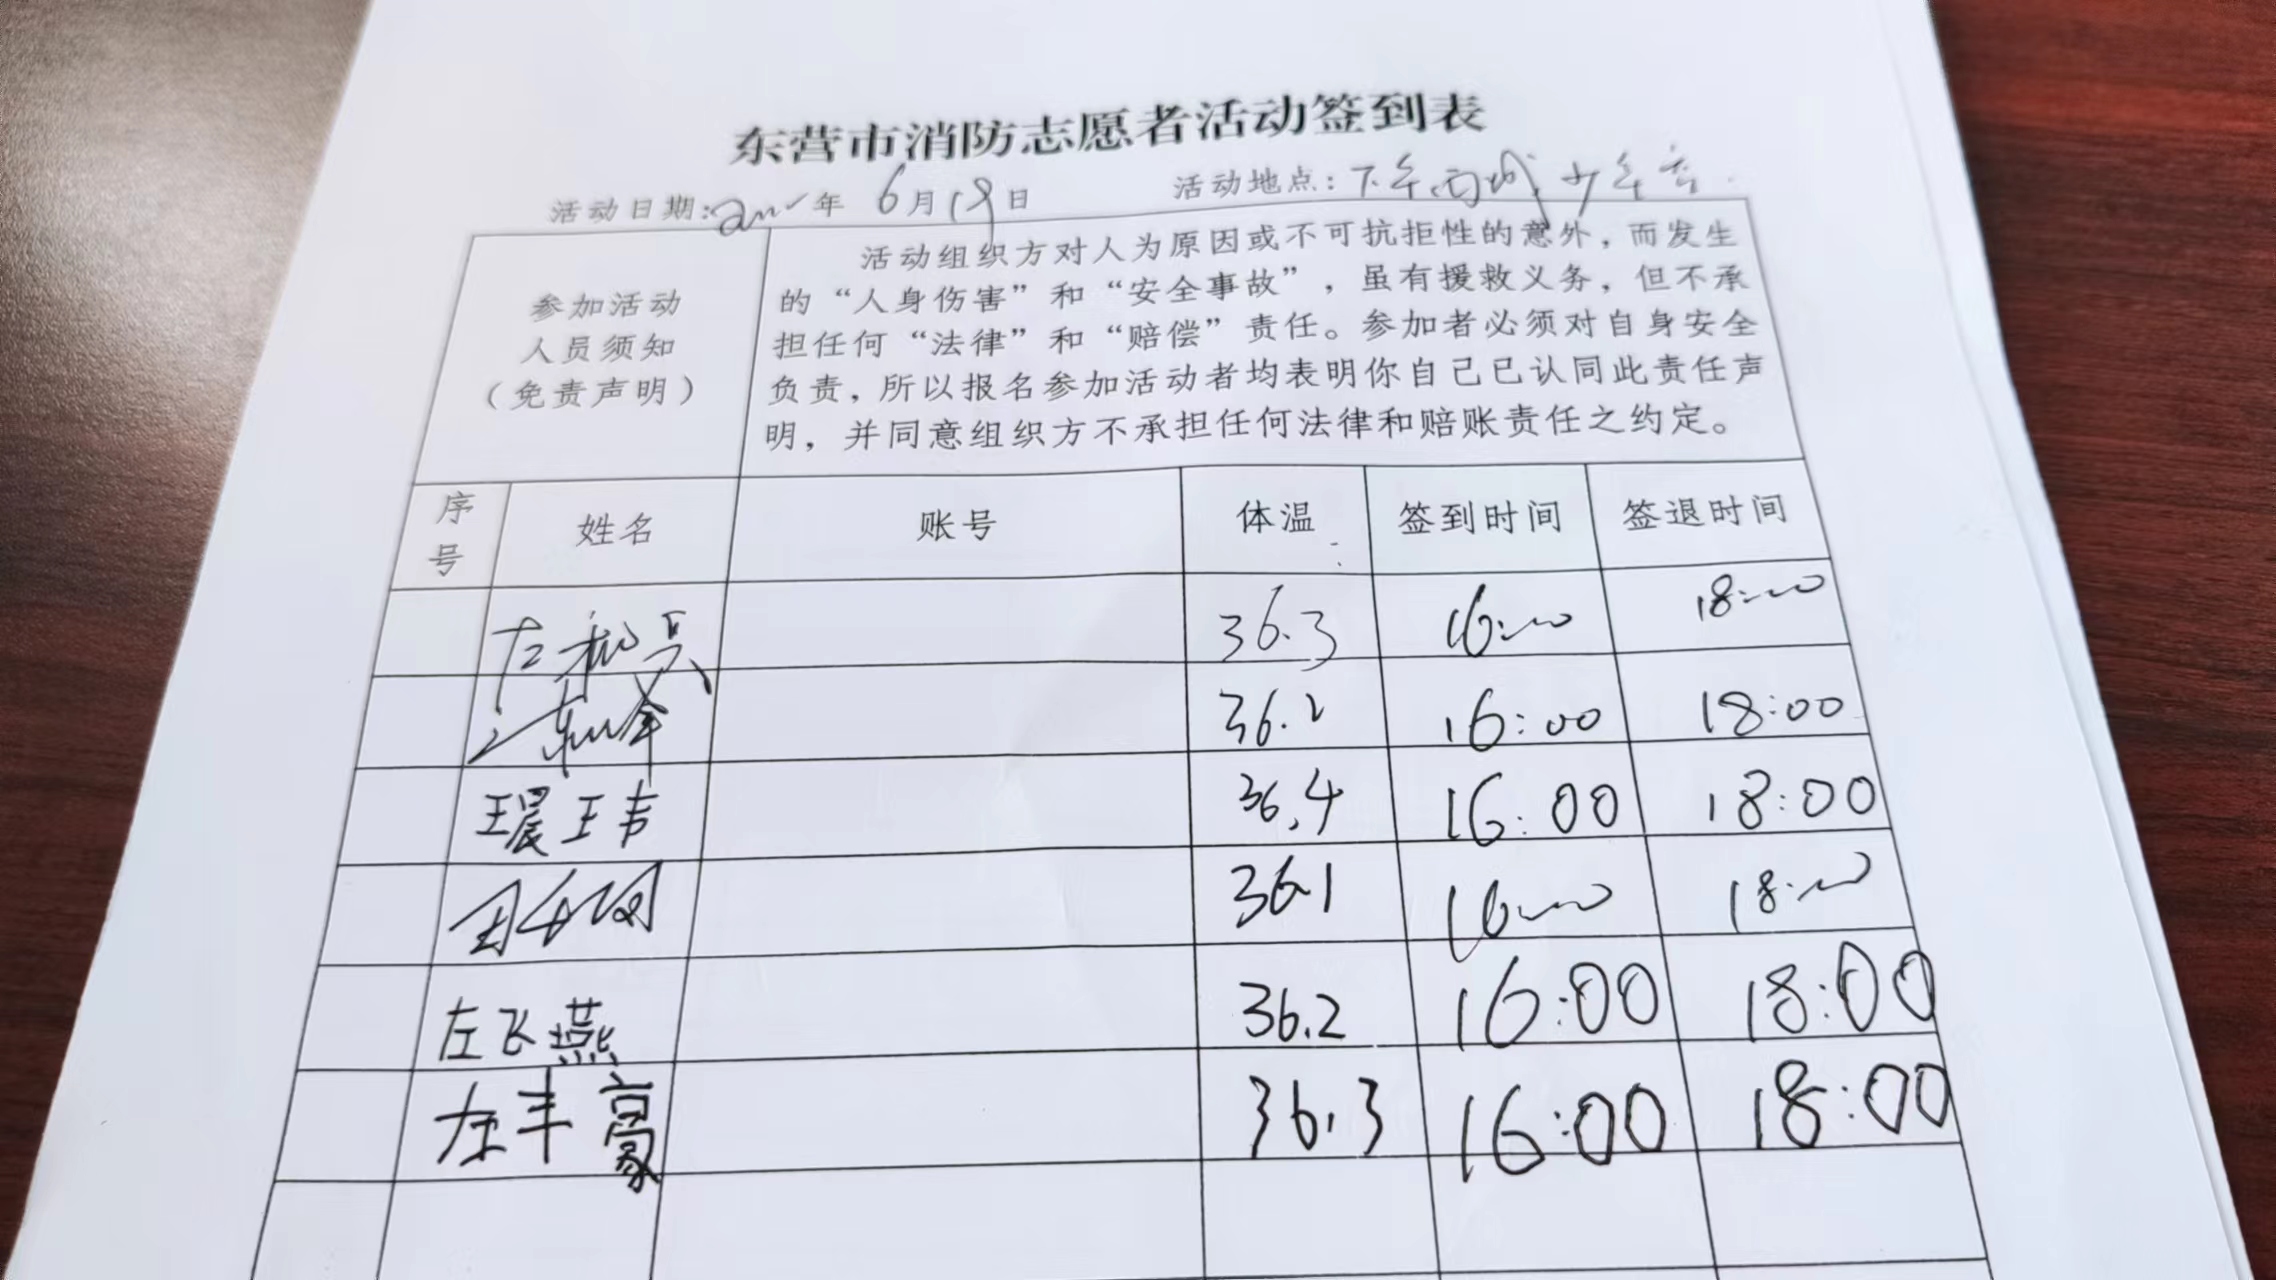 东营市消防志愿者活动签到表
活动日期: 年 6月19日 活动地点: 下午西城少年宫
参加活动
人员须知
（免责声明）
活动组织方对人为原因或不可抗拒性的意外，而发生
的“人身伤害”和“安全事故”，虽有援救义务，但不承
担任何“法律”和“赔偿”责任。参加者必须对自身安全
负责，所以报名参加活动者均表明你自己已认同此责任声
明，并同意组织方不承担任何法律和赔账责任之约定。
序号 姓名 账号 体温 签到时间 签退时间
36.3 16:00 18:00
36.2 16:00 18:00
36.4 16:00 18:00
36.1 16:00 18:00
左飞燕 36.2 16:00 18:00
左丰豪 36.3 16:00 18:00